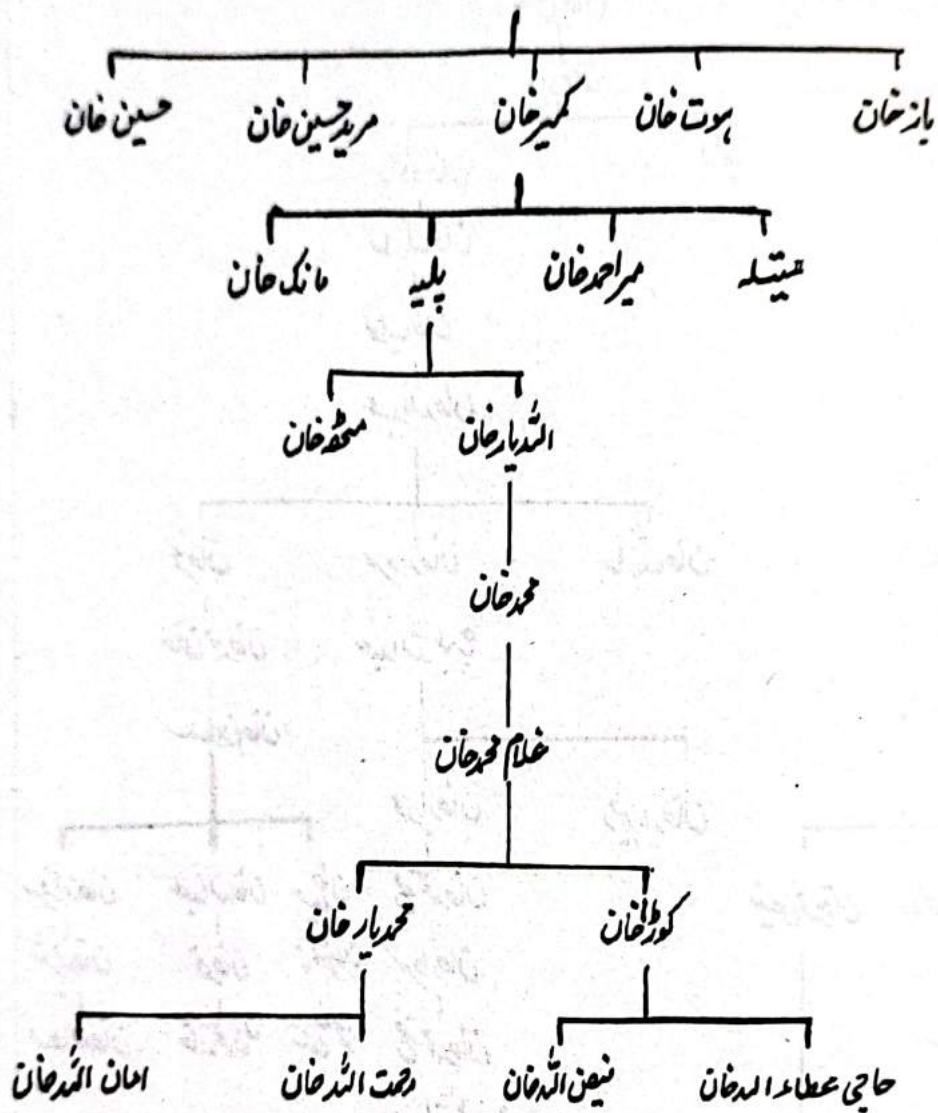 باز خان ہوت خان کمیر خان مرید حسین خان حسین خان
میر احمد خان پلیہ مانک خان
اللہ یار خان مٹھہ خان
محمد خان
غلام محمد خان
کوڑا خان محمد یار خان
حاجی عطاء اللہ خان فیض اللہ خان رحمت اللہ خان امان اللہ خان